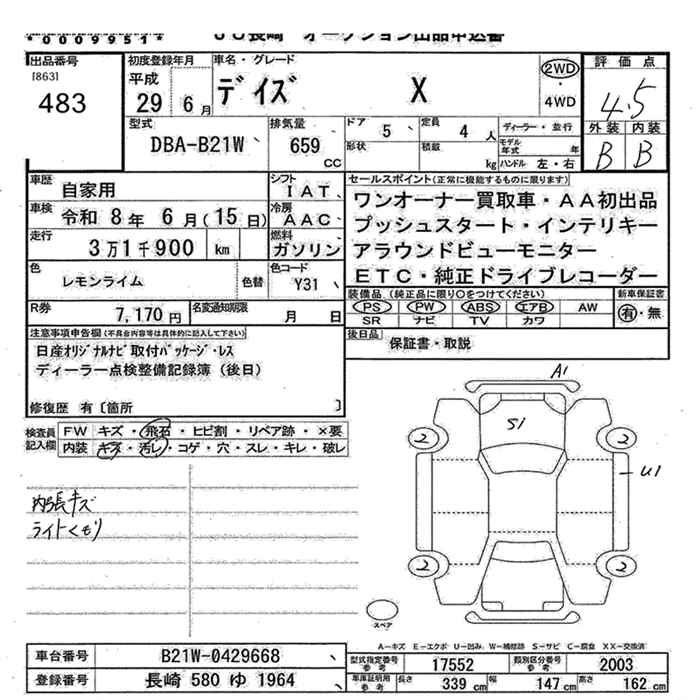 *0009951* JU長崎 オークション出品申込書
出品番号 [863] 483
初度登録年月 平成 29年 6月
車名・グレード デイズ X
2WD・4WD
評価点 4.5
外装 B 内装 B
型式 DBA-B21W
排気量 659 CC
ドア 5 形状
定員 4 人 積載 kg
ディーラー・並行
モデル年式 年
ハンドル 左・右
車歴 自家用
シフト IAT
車検 令和 8年 6月(15日)
冷房 AAC
走行 3万1千900 km
燃料 ガソリン
色 レモンライム 色替
色コード Y31
R券 7,170円
名変通知期限 月 日
セールスポイント(正常に機能するものに限ります)
ワンオーナー買取車・AA初出品
プッシュスタート・インテリキー
アラウンドビューモニター
ETC・純正ドライブレコーダー
装備品(純正品に限り○をつけてください) 新車保証書
PS PW ABS エアB AW 有・無
SR ナビ TV カワ
後日品 保証書・取説
注意事項申告欄(不具合内容等は具体的に記入して下さい)
日産オリジナルナビ取付パッケージ・レス
ディーラー点検整備記録簿(後日)
修復歴 有〔箇所 〕
検査員記入欄
FW キズ・飛石・ヒビ割・リペア跡・×要
内装 キズ・汚レ・コゲ・穴・スレ・キレ・破レ
内張キズ
ライトくもり
A1
S1
2
2
U1
2
2
スペア
A-キズ E-エクボ U-凹み W-補修跡 S-サビ C-腐食 XX-交換済
車台番号 B21W-0429668
型式指定番号参考 17552 類別区分番号参考 2003
登録番号 長崎 580 ゆ 1964
車庫証明用参考 長さ 339 cm 幅 147 cm 高さ 162 cm